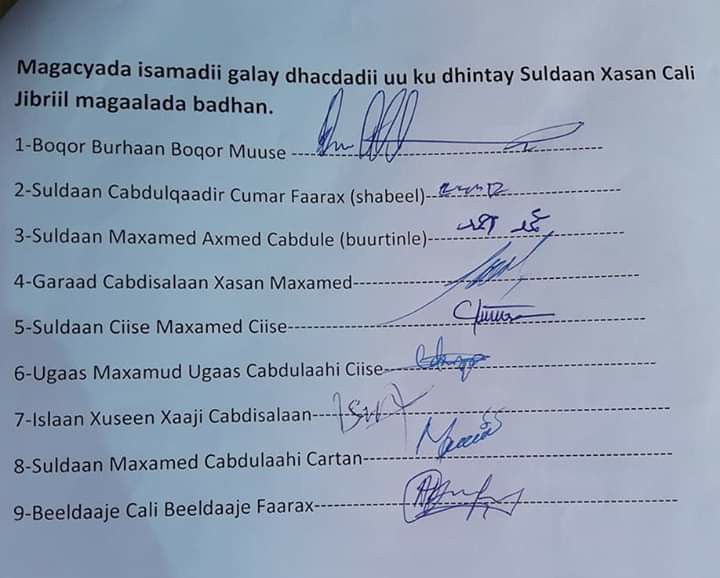 Magacyada isamadii galay dhacdadii uu ku dhintay Suldaan Xasan Cali
Jibriil magaalada badhan.
1-Boqor Burhaan Boqor Muuse
2-Suldaan Cabdulqaadir Cumar Faarax (shabeel)
3-Suldaan Maxamed Axmed Cabdule (buurtinle)
4-Garaad Cabdisalaan Xasan Maxamed
5-Suldaan Ciise Maxamed Ciise
6-Ugaas Maxamud Ugaas Cabdulaahi Ciise
7-Islaan Xuseen Xaaji Cabdisalaan
8-Suldaan Maxamed Cabdulaahi Cartan
9-Beeldaaje Cali Beeldaaje Faarax